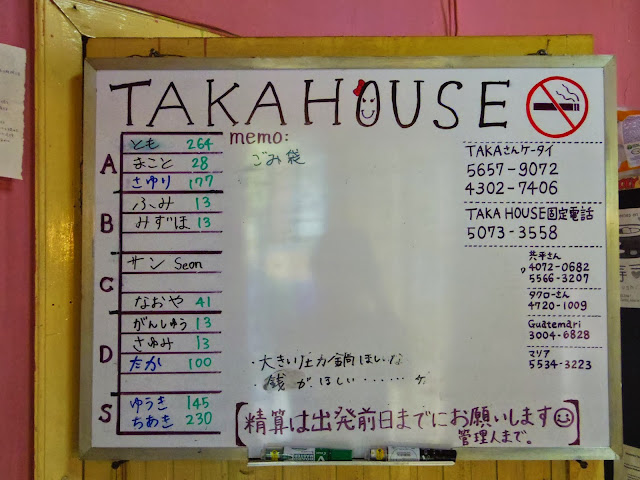 TAKA HOUSE
memo:
ごみ袋
A
とも 264
まこと 28
さゆり 177
B
ふみ 13
みずほ 13
C
サン Seon
なおや 41
D
がんしゅう 13
さゆみ 13
たか 100
S
ゆうき 145
ちあき 230
TAKAさんケータイ
5657-9072
4302-7406
TAKA HOUSE固定電話
5073-3558
共平さん
4072-0682
5566-3207
タクローさん
4720-1009
Guatemari
3004-6828
マリア
5534-3223
・大きい圧力鍋ほしいな
・銭がほしい……
【精算は出発前日までにお願いします
管理人まで。】